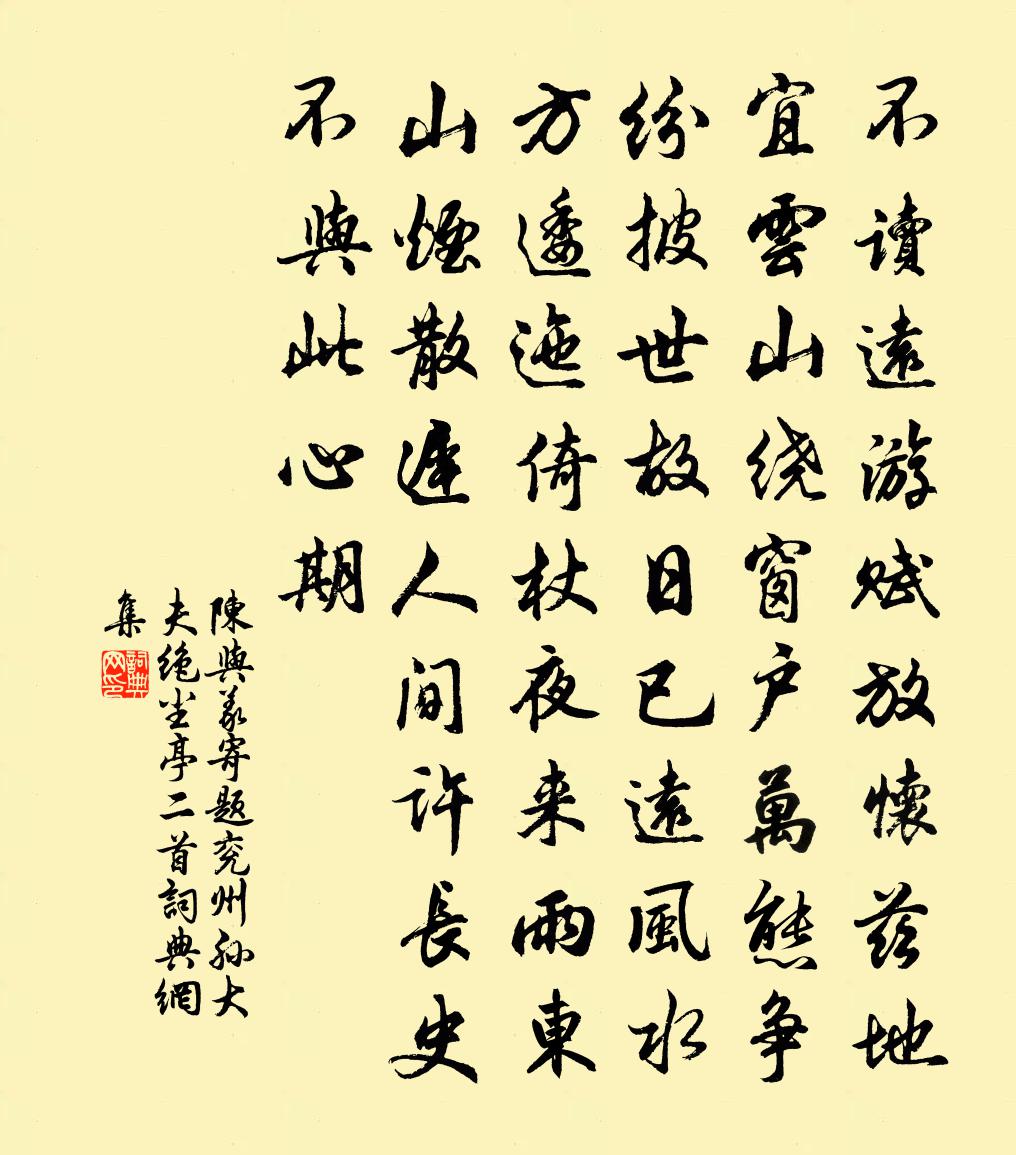 不讀遠游賦放懷茲地
宜雲山绕窗户萬態争
紛披世故日已遠風水
方逶迤倚杖夜来雨東
山煙散遲人间许長史
不與此心期
陳與義寄題兖州孙大
夫绝尘亭二首詞典網
集
詞典网印